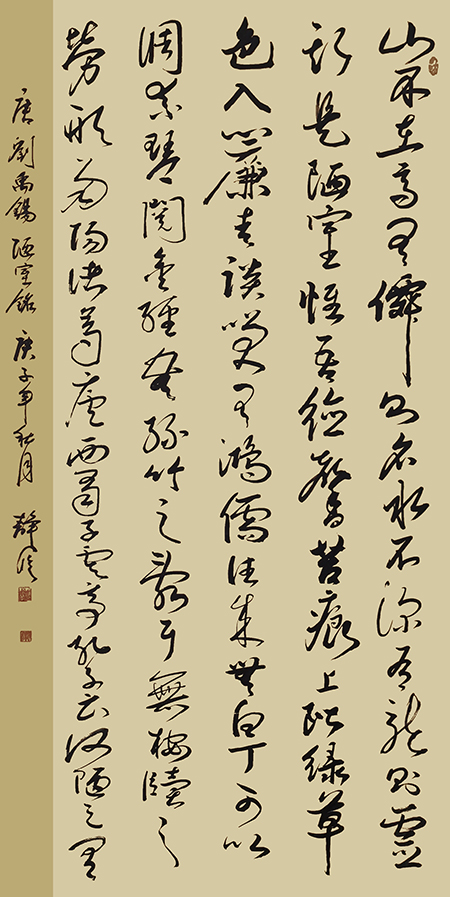 山不在高有僊則名水不深有龍則靈
斯是陋室惟吾德馨苔痕上階綠草
色入簾青談笑有鴻儒往來無白丁可以
調素琴閱金經無絲竹之亂耳無案牘之
勞形南陽諸葛廬西蜀子雲亭孔子云何陋之有
唐劉禹錫陋室銘 庚子年秋月 靜